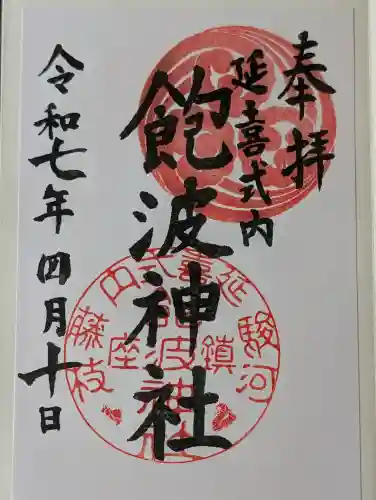 奉拝
延喜式内
飽波神社
令和七年四月十日
延喜式内
駿河
藤枝
鎮座
飽波神社